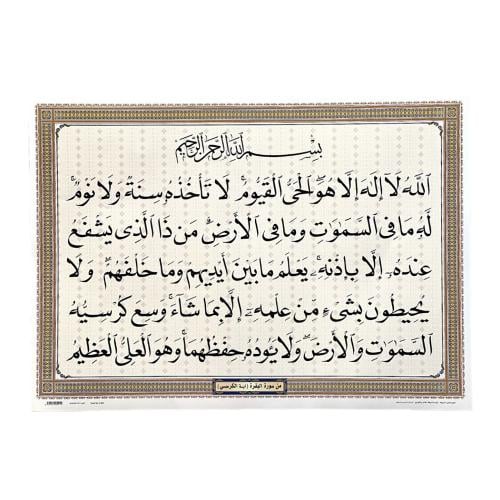 بِسْمِ اللهِ الرَّحْمٰنِ الرَّحِيْمِ
اَللّٰهُ لَآ اِلٰهَ اِلَّا هُوَ الْحَيُّ الْقَيُّوْمُ لَا تَأْخُذُهٗ سِنَةٌ وَلَا نَوْمٌ
لَهٗ مَا فِي السَّمٰوٰتِ وَمَا فِي الْاَرْضِ مَنْ ذَا الَّذِيْ يَشْفَعُ
عِنْدَهٗٓ اِلَّا بِاِذْنِهٖ يَعْلَمُ مَا بَيْنَ اَيْدِيْهِمْ وَمَا خَلْفَهُمْ وَلَا
يُحِيْطُوْنَ بِشَيْءٍ مِّنْ عِلْمِهٖٓ اِلَّا بِمَا شَآءَ وَسِعَ كُرْسِيُّهُ
السَّمٰوٰتِ وَالْاَرْضَ وَلَا يَـُٔوْدُهٗ حِفْظُهُمَا وَهُوَ الْعَلِيُّ الْعَظِيْمُ
من سورة البقرة (آية الكرسي)